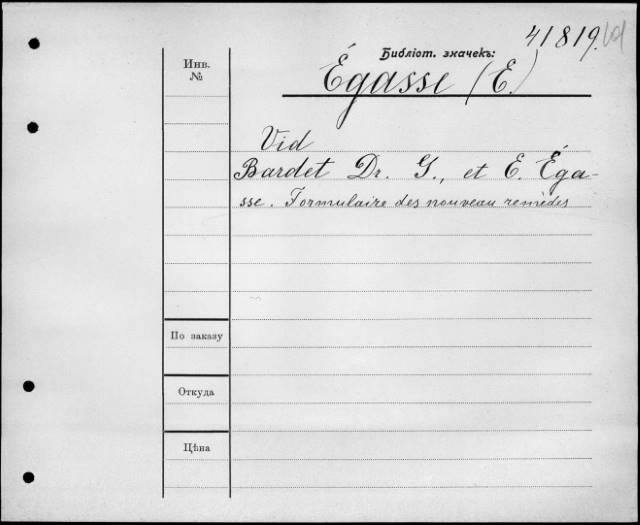 41819.
Библіот. значекъ:
Инв.
№
Égasse (E.)
Vid
Bardet Dr. G., et E. Éga-
sse. Formulaire des nouveau remèdes
По заказу
Откуда
Цѣна